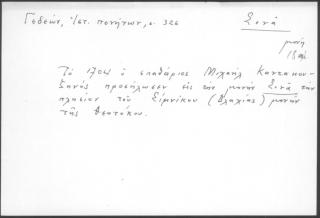 Γεδεών, Ἱστ. πενήτων, σ. 326
Σινᾶ
μονή
Τὸ 1704 ὁ σπαθάριος Μιχαὴλ Καντακου-
ζηνὸς προσήλωσεν εἰς τὴν μονὴν Σινᾶ τὴν
πλησίον τοῦ Σιρνίκου (Βλαχίας) μονὴν
τῆς Θεοτόκου.